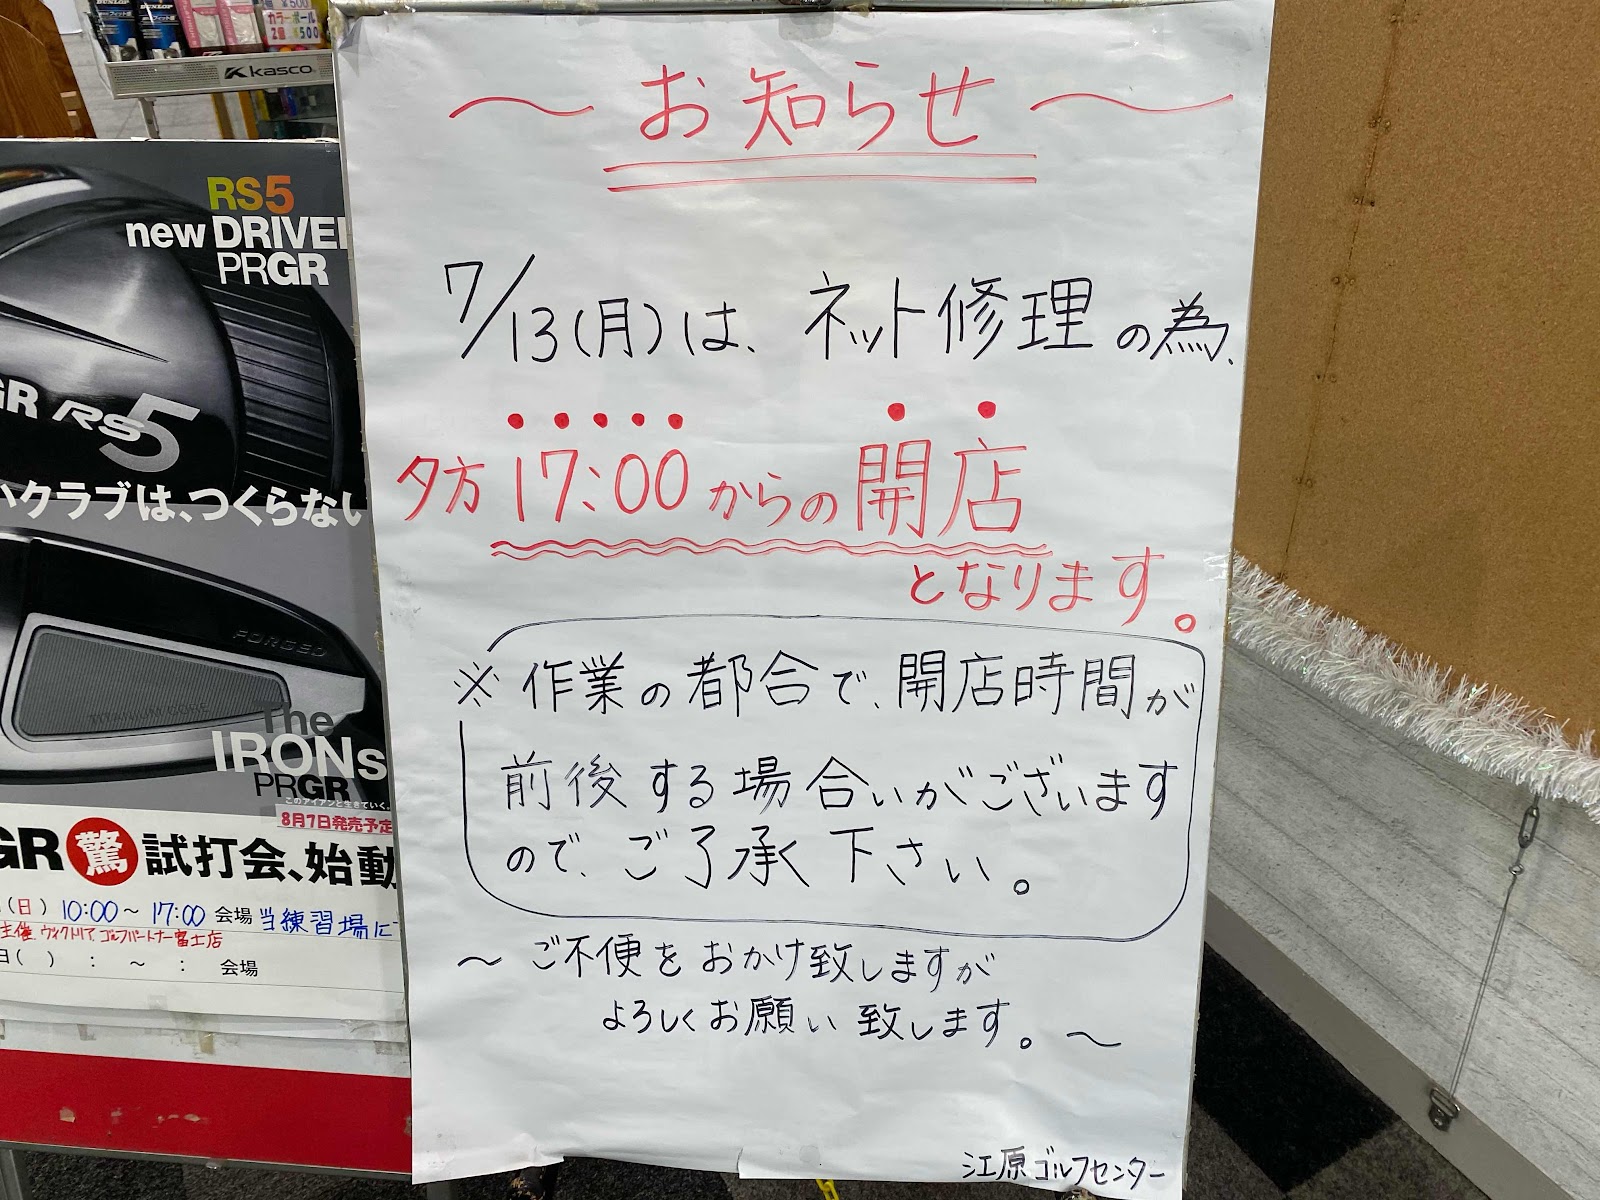 DUNLOP
DUNLOP
¥500
カラーボール
2個 ¥500
kasco
RS5
new DRIVER
PRGR
GR RS5
いクラブは、つくらない
FORGED
TITANIUM CORE
The
IRONs
PRGR
このアイアンと生きていく。
8月7日発売予定
GR 驚 試打会、始動
(日) 10:00～17:00 会場 当練習場にて
主催 ヴィクトリアゴルフパートナー富士店
日( ) : ～ : 会場
～お知らせ～
7/13(月)は、ネット修理の為、
夕方17:00からの開店
となります。
※作業の都合で、開店時間が
前後する場合いがございます
ので、ご了承く下さい。
～ご不便をおかけ致しますが
よろしくお願い致します。～
江原ゴルフセンター